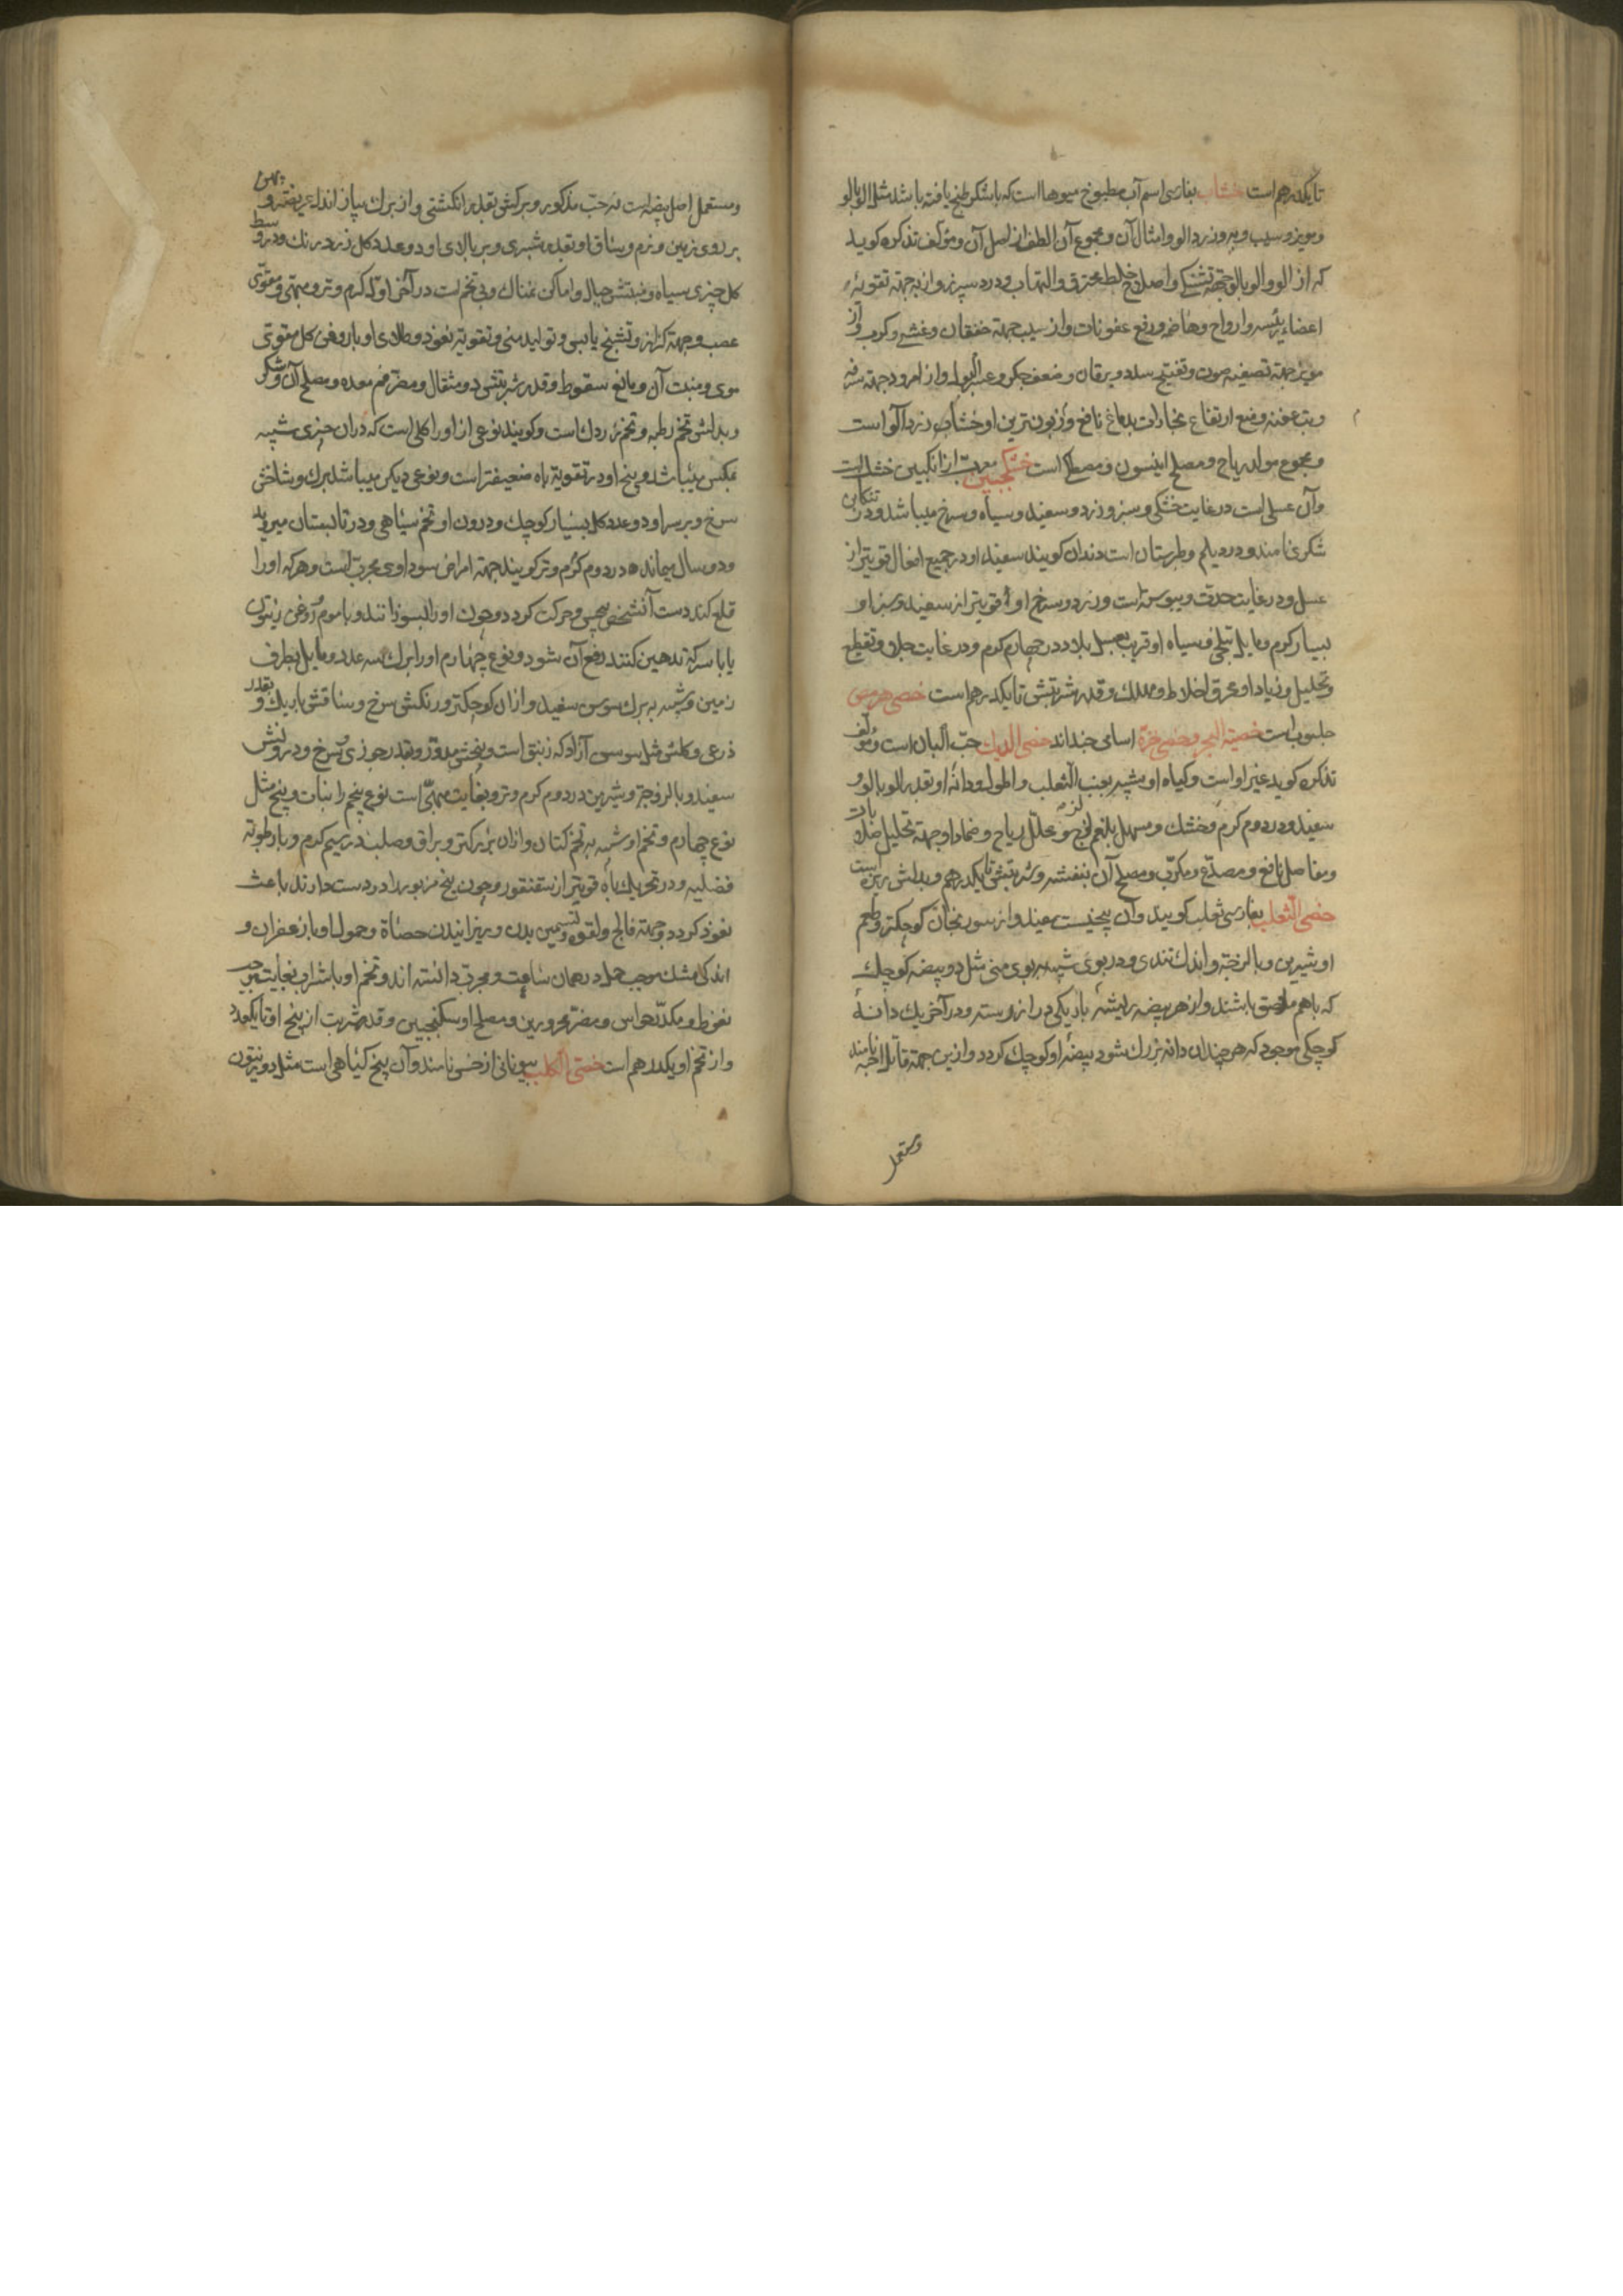 تا یکدرهم است خشاب بفارسی اسم آب مطبوخ میوها است که با شکر طبخ یافته باشد مثل الوبالو
و مویز و سیب و به و زردالو و امثال آن و مجموع آن الطف از اصل آن و مؤلف تذکره کوید
که از الو و الوبالو جهة تشنکی و اصلاح خلط محترق و التهاب و درد سپرز و از به جهة تقویة
اعضاء رئیسه و ارواح و هاضمه و رفع عفونات و از سیب جهة خفقان و غشی و کرب و از
مویز جهة تصفیه صوت و تفتیح سدد و یرقان و ضعف جکر و عسر البول و از امرود جهة سرفه
و تب عفنه و منع ارتفاع بخارات بدماغ نافع و زبون ترین او خشاب زردآلو است
و مجموع مولد ریاح و مصلح انیسون و مصطکی است خشکنجبین معرب از انکبین خشک است
و آن عسلی است در غایت خشکی و سبز و زرد و سفید و سیاه و سرخ میباشد و در تنکابن
شکری نامند و در دیلم و طبرستان است دندان کویند سفید او در جمیع افعال قویتر از
عسل و در غایت حدة و یبوست است و زرد و سرخ او قویتر از سفید و سبز او
بسیار کرم و مایل بتلخی و سیاه او قریب بعسل بلادر در چهارم کرم و در غایت جلا و تقطیع
و تحلیل و زیاد او محرق اخلاط و مهلک و قدر شربتش تا یکدرهم است خصی هرمس
حلبوب است خصیة البحر و خصی خزة اسامی جنداند خصی الدیک حب البان است و مؤلف
تذکره کوید غیر او است و کیاه او شبیه بعنب الثعلب و اطول و دانه او بقدر الوبالو و
سفید و در دوم کرم و خشک و مسهل بلغم لزج و محلل ریاح و ضماد او جهة تحلیل صلابات
و مفاصل نافع و مصدع و مکرب و مصلح آن بنفشه و شربتش تا یکدرهم و بدلش بزیدان است
خصی الثعلب بفارسی ثعلب کویند و آن بیخیست سفید و از سورنجان کوچکتر و طعم
او شیرین و با لزجة و اندک تندی و در بوی شبیه ببوی منی مثل دو بیضه کوچک
که با هم ملاصق باشند و از هر بیضه ریشه باریکی دراز رسته و در آخر یک دانه
کوچکی موجود که هر چندان دانه بزرک شود بیضه او کوچک کردد و ازین جهة قاتل اخیه نامند
و مستعمل
و مستعمل اصل بیضه است نه حب مذکور و برکش بقدر انکشتی و از برک پیاز اندک عریضتر و پهن
بر روی زمین و نرم و ساق او بقدر شبری و بر بالای او دو عدد کل زرد رنک و در وسط
کل چیزی سیاه و منبتش جبال و اماکن نمناک و بی تخم است در آخر اول کرم و تر و مبهی و مقوی
عصب و جهة کزاز و تشنج یابسی و تولید منی و تقویة نعوذ و طلای او با روغن کل مقوی
موی و منبت آن و مانع سقوط و قدر شربتش دو مثقال و مضر فم معده و مصلح آن شکر
و بدلش تخم رطبه و تخم زردک است و کویند نوعی از او را کلی است که در آن چیزی شبیه
بمکس میباشد و بیخ او در تقویة باه ضعیفتر است و نوعی دیکر میباشد برک و شاخش
سرخ و بر سر او دو عدد کل بسیار کوچک و درون او تخم سیاهی و در تابستان میروید
و دو سال میماند در دوم کرم و تر کویند جهة امراض سوداوی مجرب است و هرکه او را
قلع کند دست آنشخص بیحس و حرکت کردد و چون او را بسوزانند و با موم و روغن زیتون
یا با سرکه تدهین کنند رفع آن شود و نوع چهارم او را برک سه عدد و مایل بطرف
زمین و شبیه به برک سوسن سفید و از آن کوچکتر و رنکش سرخ و ساقش باریک و بقدر
ذرعی و کلش مثل سوسن آزاد که زنبق است و بیخش مدور و بقدر جوزی و سرخ و درونش
سفید و با لزوجة و شیرین در دوم کرم و تر و بغایت مبهی است نوع پنجم را نبات و بیخ مثل
نوع چهارم و تخم او شبیه به تخم کتان و از آن بزرکتر و براق و صلب در سیم کرم و با رطوبة
فضلیه و در تحریک باه قویتر از سقنقور و چون بیخ مزبور را در دست دارند باعث
نعوذ کردد و جهة فالج و لقوه و تسمین بدن و ریزانیدن حصاة و حمول او با زعفران و
اندکی مشک موجب حمل در همان ساعت و مجرب دانسته اند و تخم او با شراب بغایت موجب
نعوظ و مکدر حواس و مضر محرورین و مصلح او سکنجبین و قدر شربت از بیخ او تا یکعدد
و از تخم او یکدرهم است خصی الکلب بیونانی ارخسی نامند و آن بیخ کیاهی است مثل دو زیتون